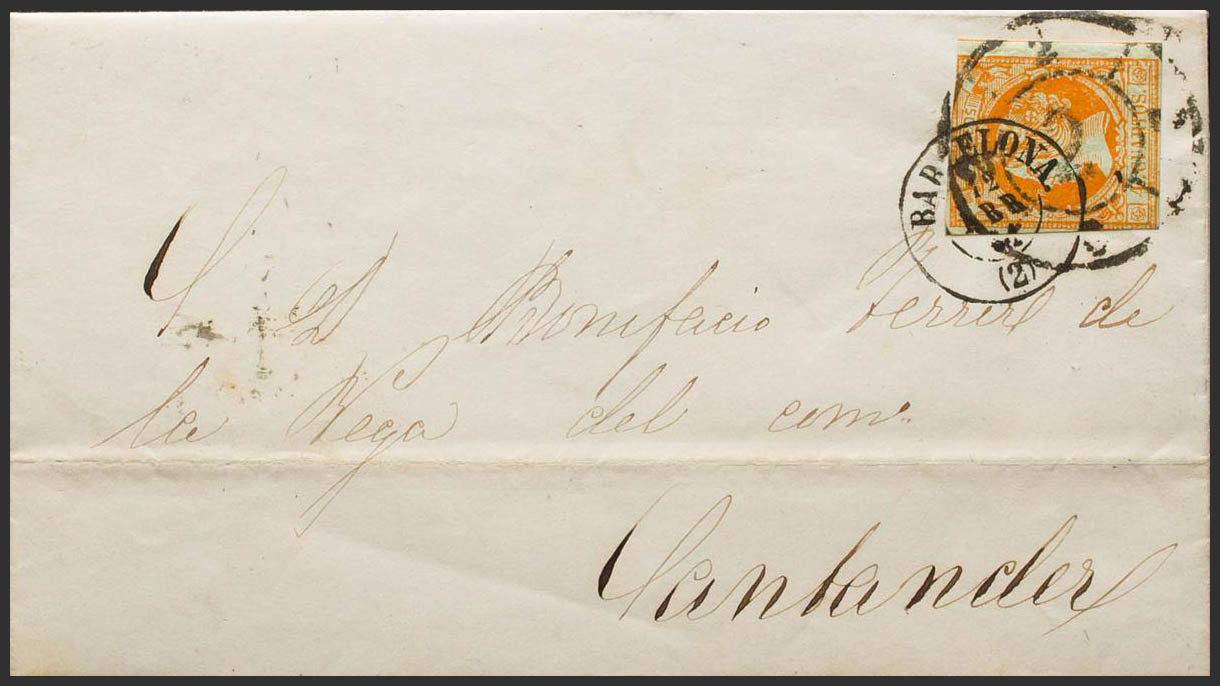 BARCELONA.
12
BR
(2)
S. D Bonifacio Ferrer de
la Vega del comº
Santander